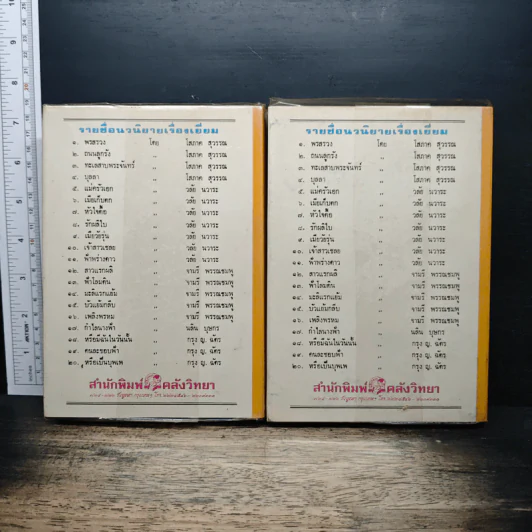 รายชื่อนวนิยายเรื่องเยี่ยม
๑. พรสรวง โดย โสภาค สุวรรณ
๒. ถนนลูกรัง " โสภาค สุวรรณ
๓. ทะเลสาบพระจันทร์ " โสภาค สุวรรณ
๔. บุลลา " โสภาค สุวรรณ
๕. แม่ครัวเอก " วลัย นวาระ
๖. เมียเก็บตก " วลัย นวาระ
๗. หัวใจดื้อ " วลัย นวาระ
๘. รักผลิใบ " วลัย นวาระ
๙. เมียวัยรุ่น " วลัย นวาระ
๑๐. เจ้าสาวเชลย " วลัย นวาระ
๑๑. ฟ้าพร่างดาว " วลัย นวาระ
๑๒. สาวแรกผลิ " จามรี พรรณชมพู
๑๓. ฟ้าโลมดิน " จามรี พรรณชมพู
๑๔. มะลิแรกแย้ม " จามรี พรรณชมพู
๑๕. บัวแย้มกลีบ " จามรี พรรณชมพู
๑๖. เพลิงพรหม " จามรี พรรณชมพู
๑๗. กำไลนางฟ้า " นลิน บุษกร
๑๘. หรือมีฉันในวันนั้น " กรุง ญ. ฉัตร
๑๙. คนละขอบฟ้า " กรุง ญ. ฉัตร
๒๐. หรือเป็นบุพเพ " กรุง ญ. ฉัตร
สำนักพิมพ์ คลังวิทยา
รายชื่อนวนิยายเรื่องเยี่ยม
๑. พรสรวง โดย โสภาค สุวรรณ
๒. ถนนลูกรัง " โสภาค สุวรรณ
๓. ทะเลสาบพระจันทร์ " โสภาค สุวรรณ
๔. บุลลา " โสภาค สุวรรณ
๕. แม่ครัวเอก " วลัย นวาระ
๖. เมียเก็บตก " วลัย นวาระ
๗. หัวใจดื้อ " วลัย นวาระ
๘. รักผลิใบ " วลัย นวาระ
๙. เมียวัยรุ่น " วลัย นวาระ
๑๐. เจ้าสาวเชลย " วลัย นวาระ
๑๑. ฟ้าพร่างดาว " วลัย นวาระ
๑๒. สาวแรกผลิ " จามรี พรรณชมพู
๑๓. ฟ้าโลมดิน " จามรี พรรณชมพู
๑๔. มะลิแรกแย้ม " จามรี พรรณชมพู
๑๕. บัวแย้มกลีบ " จามรี พรรณชมพู
๑๖. เพลิงพรหม " จามรี พรรณชมพู
๑๗. กำไลนางฟ้า " นลิน บุษกร
๑๘. หรือมีฉันในวันนั้น " กรุง ญ. ฉัตร
๑๙. คนละขอบฟ้า " กรุง ญ. ฉัตร
๒๐. หรือเป็นบุพเพ " กรุง ญ. ฉัตร
สำนักพิมพ์ คลังวิทยา